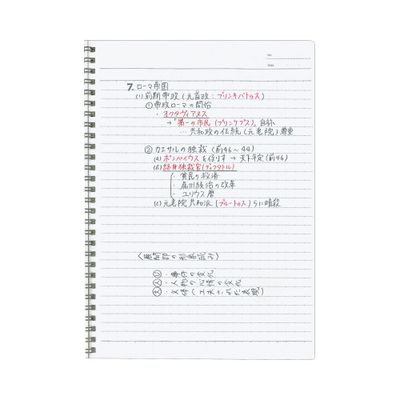 No.
Date
7. ローマ帝国
(1) 前期帝政(元首政:プリンキパトゥス)
①帝政ローマの開始
・オクタヴィアヌス
→"第一の市民(プリンケプス)"自称
… 共和政の伝統(元老院)尊重
② カエサルの独裁(前46~44)
(a) ポンペイウスを倒す → 天下平定(前46)
(b) 終身独裁官(ディクタトル)
・貧民の救済
・属州政治の改革
・ユリウス暦
(c) 元老院共和派(ブルートゥス)らに暗殺
・事件の変化
・人物の心情の変化
・文体(工夫された表現)